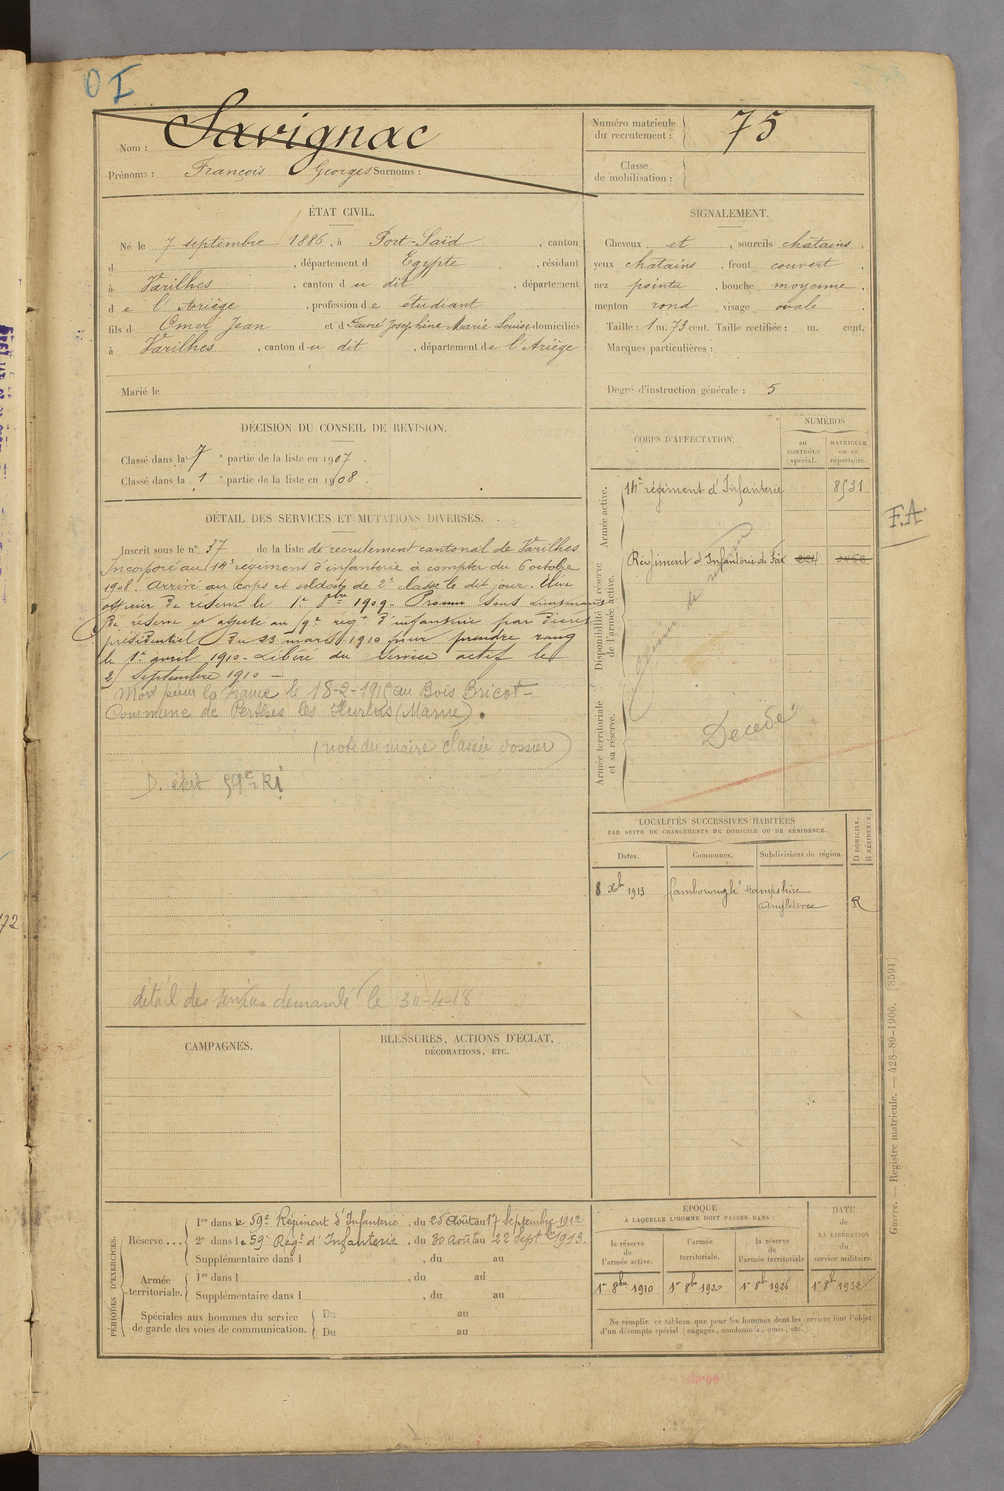 OI
Nom : Savignac
Prénoms : François Georges Surnoms :
Numéro matricule du recrutement : 75
Classe de mobilisation :
ÉTAT CIVIL.
Né le 7 septembre 1886, à Port-Saïd, canton
d , département d Egypte, résidant
à Varilhes, canton du dit, département
de l'Ariège, profession de etudiant
fils d Omer Jean et de Fauré Josephine Marie Louise domiciliés
à Varilhes, canton du dit, département de l'Ariège
Marié le
SIGNALEMENT.
Cheveux et , sourcils chatains.
yeux chatains, front couvert,
nez pointu, bouche moyenne,
menton rond visage ovale.
Taille : 1 m. 73 cent. Taille rectifiée : m. cent.
Marques particulières :
Degré d'instruction générale : 5
DÉCISION DU CONSEIL DE REVISION.
Classé dans la 7e partie de la liste en 1907.
Classé dans la 1e partie de la liste en 1908.
DÉTAIL DES SERVICES ET MUTATIONS DIVERSES.
Inscrit sous le n° 37 de la liste de recrutement cantonal de Varilhes
Incorporé au 14e régiment d'infanterie à compter du 6 octobre
1908. Arrivé au corps et soldat de 2e classe le dit jour. Elève
officier de réserve le 1er 8bre 1909. Promu sous lieutenant
de réserve et affecté au 59e reg. d'infanterie par décret
présidentiel du 23 mars 1910 pour prendre rang
le 1er avril 1910. Libéré du service actif le
25 septembre 1910 -
Mort pour la France le 18-2-1915 au Bois Bricot -
Commune de Perthes les Hurlus (Marne).
(note du maire classée dossier)
D. état 59e RI
détail des services demandé le 30-4-18
CORPS D'AFFECTATION.
NUMÉROS
au CONTRÔLE spécial.
MATRICULE ou au répertoire.
Armée active.
14e régiment d'Infanterie 8531
F.A
Disponibilité et réserve de l'armée active.
Régiment d'Infanterie de Foix
Armée territoriale et sa réserve.
Décédé
LOCALITÉS SUCCESSIVES HABITÉES
PAR SUITE DE CHANGEMENTS DE DOMICILE OU DE RÉSIDENCE.
Dates.
Communes.
Subdivisions de région.
D DOMICILE. R RÉSIDENCE.
8 Xbre 1913 Farnborough Hampshire
Angleterre R
CAMPAGNES.
BLESSURES, ACTIONS D'ÉCLAT,
DÉCORATIONS, ETC.
PÉRIODES D'EXERCICES.
Réserve ...
1re dans le 59e Régiment d'Infanterie, du 25 Août au 17 Septembre 1912
2e dans le 59e Régt d'Infanterie, du 30 Août au 22 Septbre 1913.
Supplémentaire dans l , du au
Armée territoriale.
1re dans l , du au
Supplémentaire dans l , du au
Spéciales aux hommes du service de garde des voies de communication.
Du au
Du au
ÉPOQUE
À LAQUELLE L'HOMME DOIT PASSER DANS :
la réserve de l'armée active.
l'armée territoriale.
la réserve de l'armée territoriale
DATE de LA LIBÉRATION du service militaire.
1er 8bre 1910
1er 8bre 1920
1er 8bre 1926
1er 8bre 1932
Ne remplir ce tableau que pour les hommes dont les services font l'objet
d'un décompte spécial (engagés, condamnés, omis, etc.)
Guerre. — Registre matricule. — 428-89-1906. [8591]